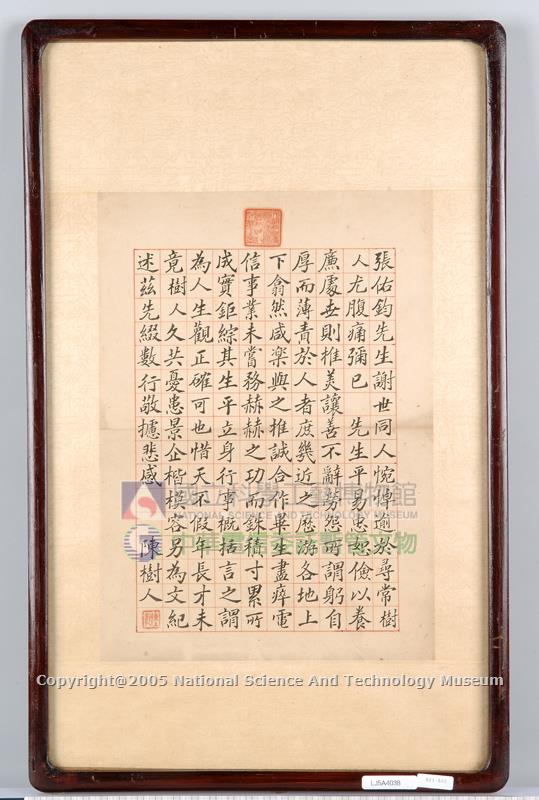 張佑鈞先生謝世同人惋悼逾於尋常樹
人尤腹痛彌已　先生平易忠恕儉以養
廉處世則推美讓善不辭勞怨所謂躬自
厚而薄責於人者庶幾近之歷游各地上
下翕然咸樂與之推誠合作畢生盡瘁電
信事業未嘗務赫赫之功而銖積寸累所
成實鉅綜其生平立身行事概括言之謂
為人生觀正確可也惜天不假年長才未
竟樹人久共憂患景企楷模容另為文紀
述茲先綴數行敬攄悲感　陳樹人
國立科學工藝博物館
NATIONAL SCIENCE AND TECHNOLOGY MUSEUM
中華電信委託數位文物
Copyright@2005 National Science And Technology Museum
LJ5A4038